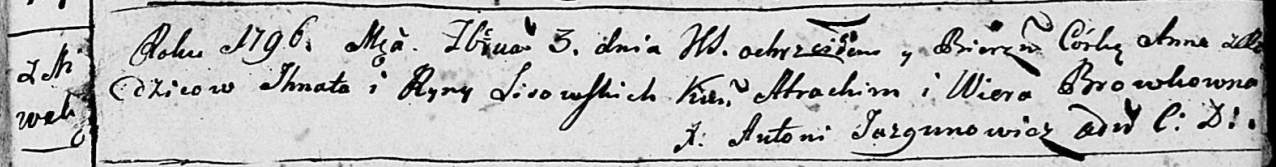 z Ni
wek
Roku 1796. Mcą. Xbrua 3. dnia JW. ochrzciłem y Bierzm Córkę Anne z Ro
dzicow Ihnata i Ryny Lisowskich Kum Atrachim i Wiera Browkowna
X: Antoni Jazgunowicz adm C: D:.